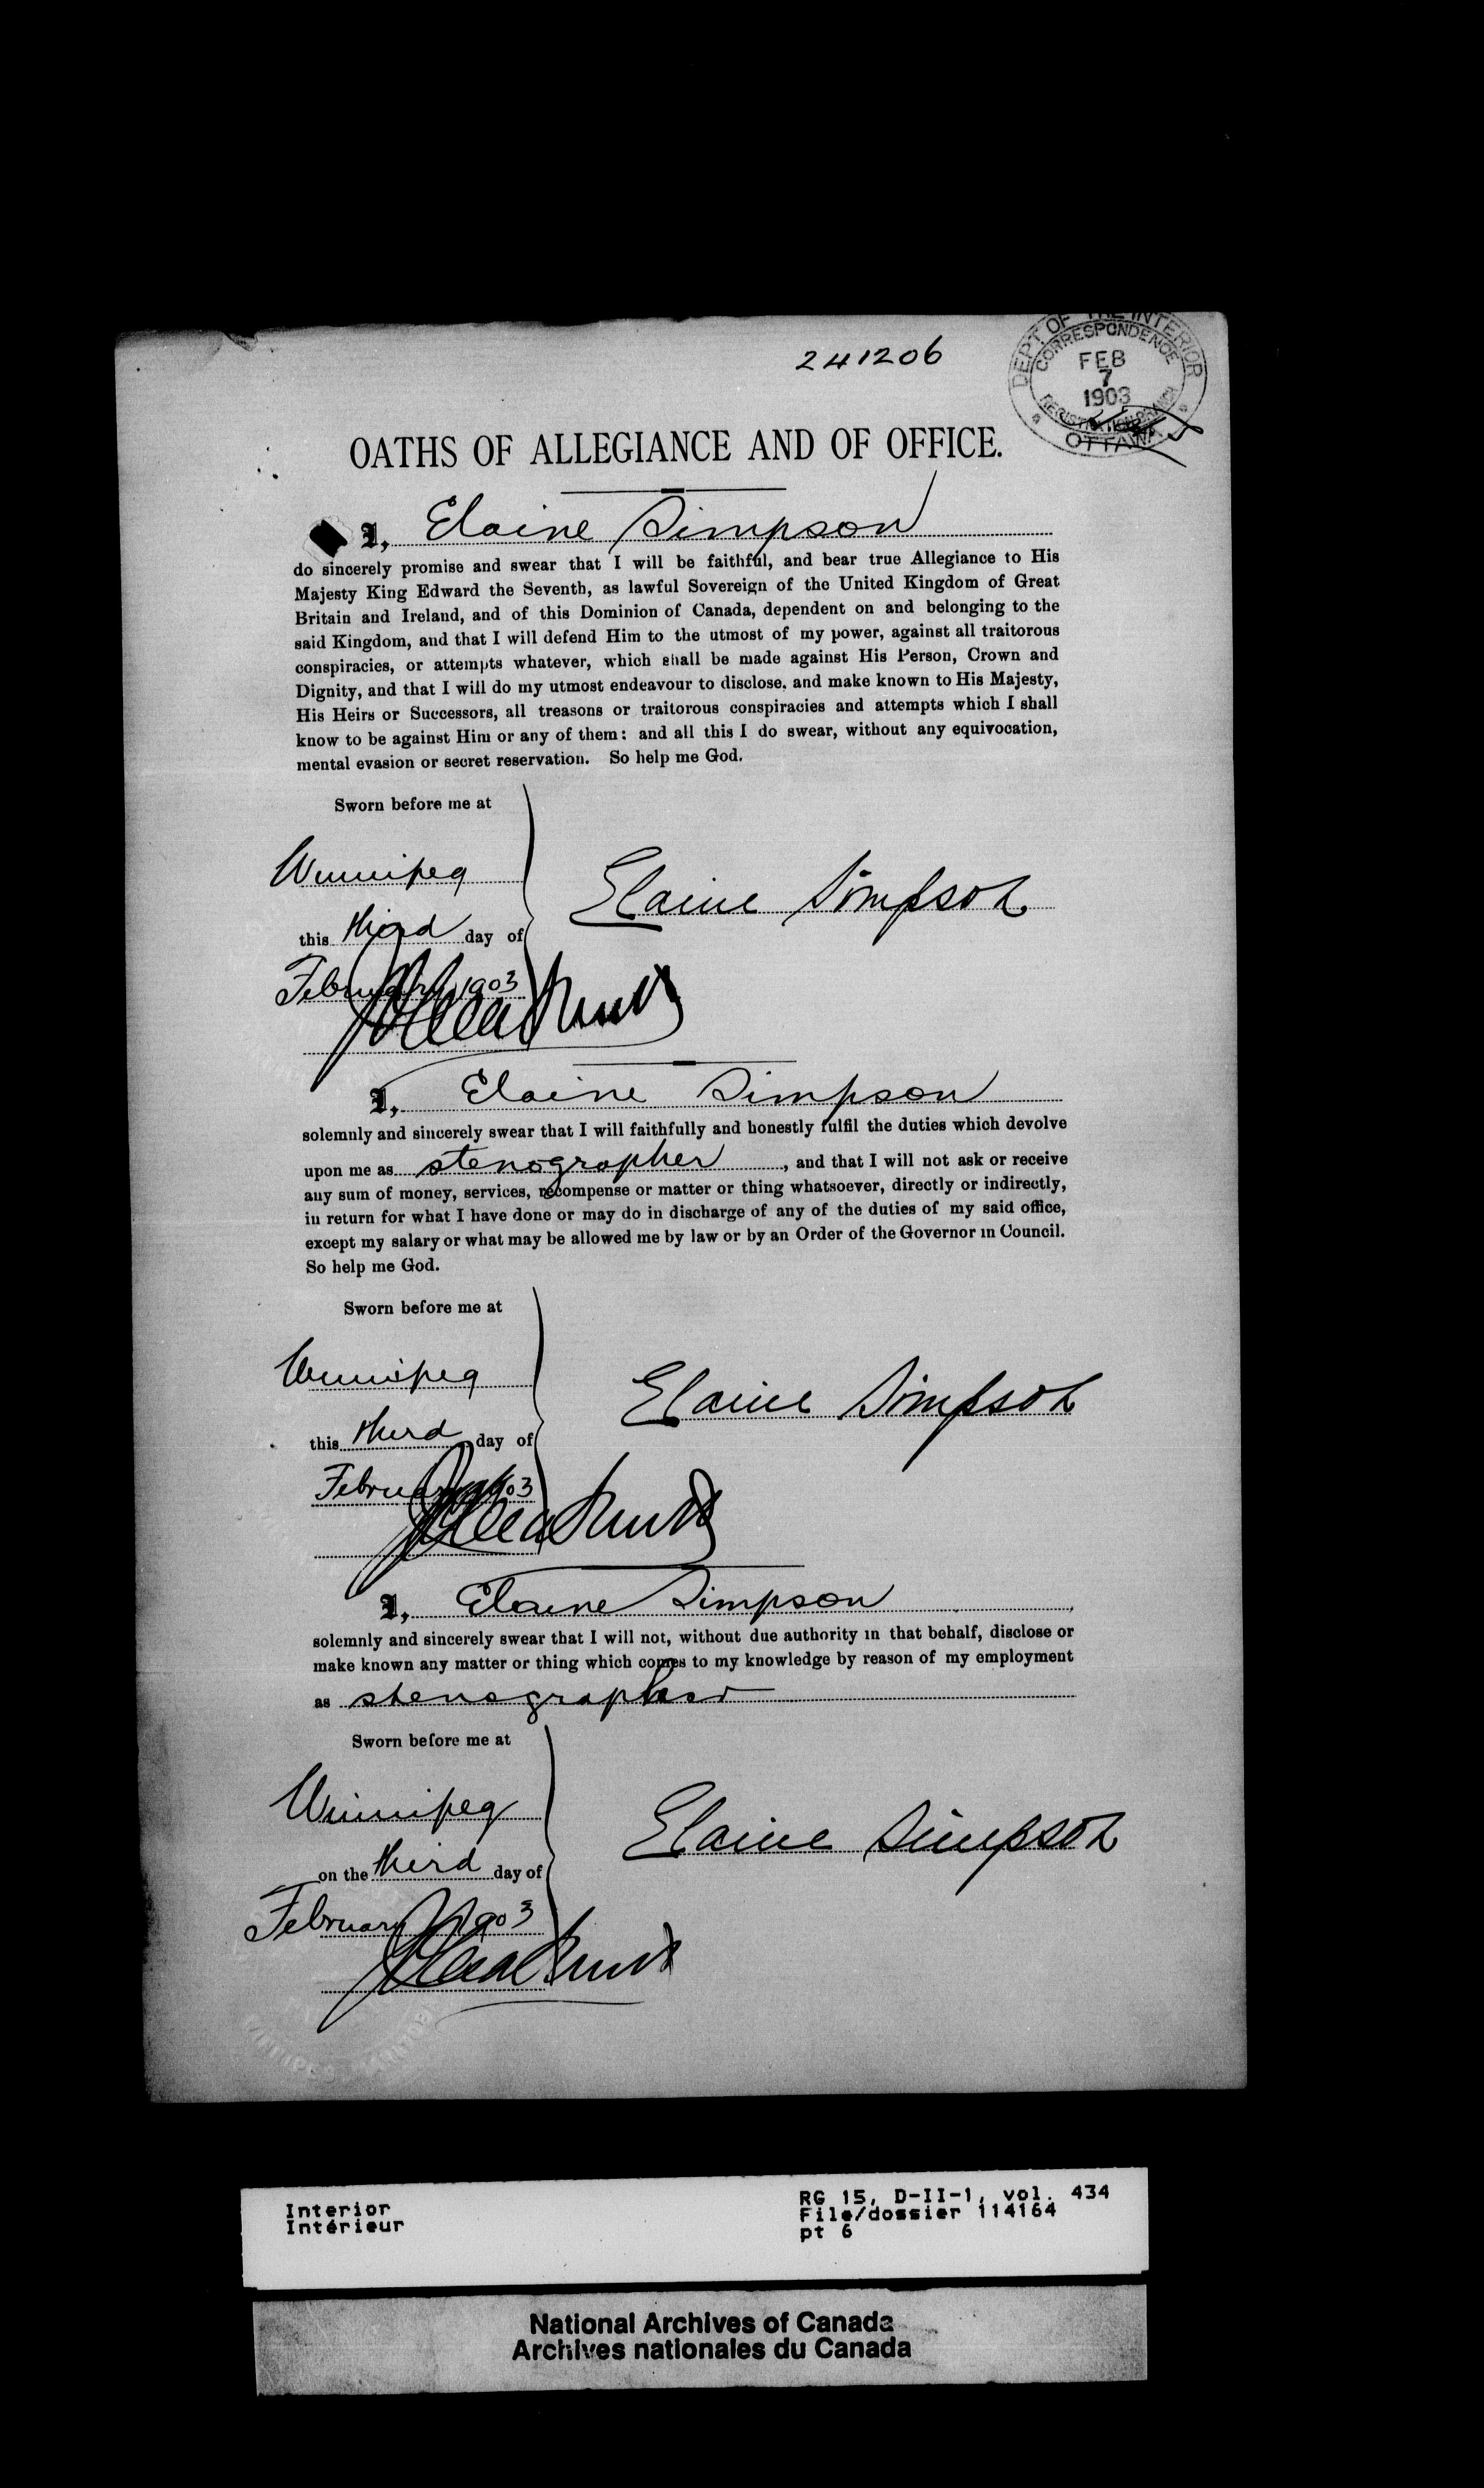 241206
DEPT. OF THE INTERIOR
CORRESPONDENCE
FEB
7
1903
REGISTRATION BRANCH
OTTAWA
OATHS OF ALLEGIANCE AND OF OFFICE.
I, Elaine Simpson
do sincerely promise and swear that I will be faithful, and bear true Allegiance to His
Majesty King Edward the Seventh, as lawful Sovereign of the United Kingdom of Great
Britain and Ireland, and of this Dominion of Canada, dependent on and belonging to the
said Kingdom, and that I will defend Him to the utmost of my power, against all traitorous
conspiracies, or attempts whatever, which shall be made against His Person, Crown and
Dignity, and that I will do my utmost endeavour to disclose, and make known to His Majesty,
His Heirs or Successors, all treasons or traitorous conspiracies and attempts which I shall
know to be against Him or any of them: and all this I do swear, without any equivocation,
mental evasion or secret reservation. So help me God.
Sworn before me at
Winnipeg
Elaine Simpson
this third day of
February 1903
I, Elaine Simpson
solemnly and sincerely swear that I will faithfully and honestly fulfil the duties which devolve
upon me as stenographer, and that I will not ask or receive
any sum of money, services, recompense or matter or thing whatsoever, directly or indirectly,
in return for what I have done or may do in discharge of any of the duties of my said office,
except my salary or what may be allowed me by law or by an Order of the Governor in Council.
So help me God.
Sworn before me at
Winnipeg
Elaine Simpson
this third day of
February 1903
I, Elaine Simpson,
solemnly and sincerely swear that I will not, without due authority in that behalf, disclose or
make known any matter or thing which comes to my knowledge by reason of my employment
as stenographer
Sworn before me at
Winnipeg
Elaine Simpson
on the third day of
February 1903
Interior
Intérieur
RG 15, D-II-1, vol. 434
File/dossier 114164
pt 6
National Archives of Canada
Archives nationales du Canada